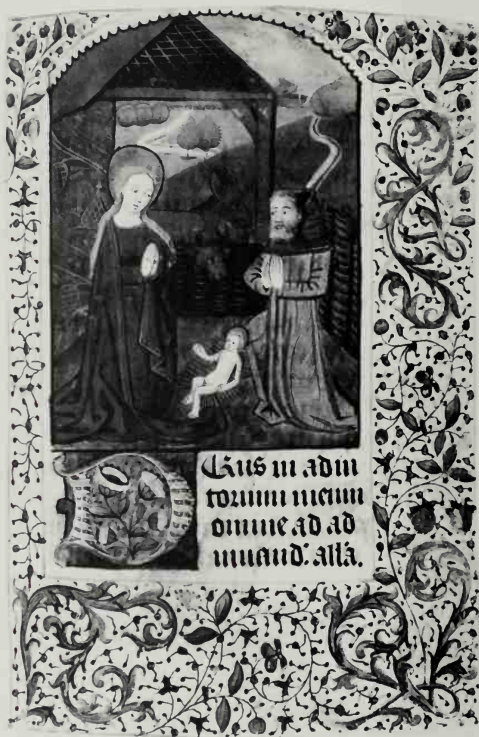 Deus in adiu
torium meum
omine ad ad
iuuand. alla.